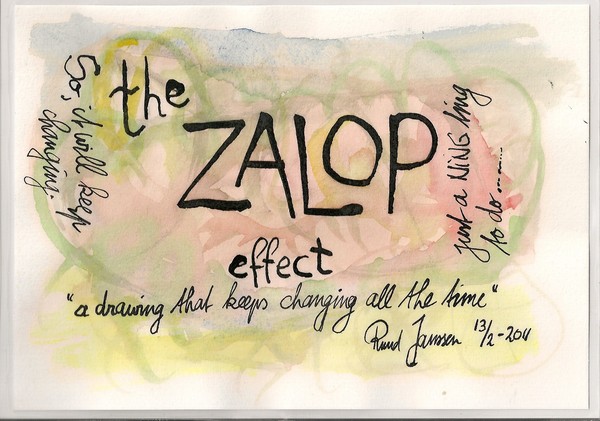 the
ZALOP
effect
"a drawing that keeps changing all the time"
Ruud Janssen 13/2-2011
So, it will keep
changing.
just a NING thing
to do.......